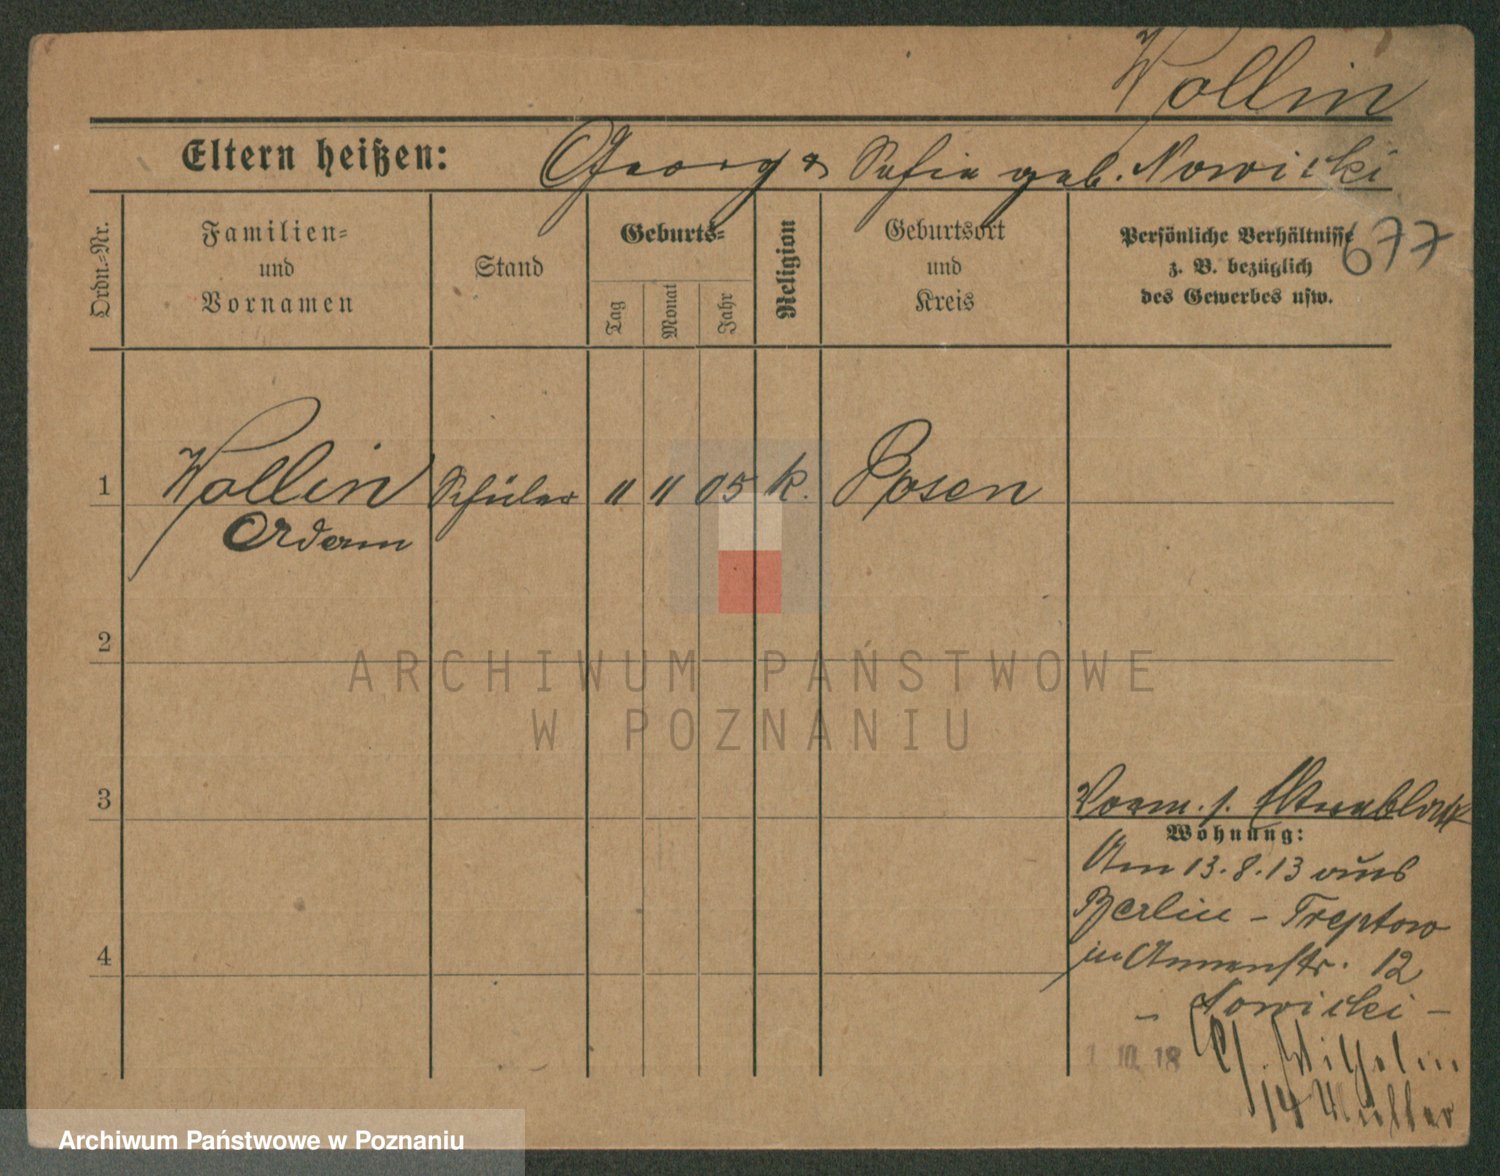 Wollin
Eltern heißen: Georg & Sofie geb. Nowicki
Ordn.=Nr.
Familien=
und
Vornamen
Stand
Geburts=
Tag
Monat
Jahr
Religion
Geburtsort
und
Kreis
Persönliche Verhältnisse
z. B. bezüglich
des Gewerbes usw.
677
1 Wollin Schüler " " 05 k. Posen
Adam
2
ARCHIWUM PAŃSTWOWE
W POZNANIU
3
Vorm. s. Elternblatt
Wohnung:
Am 13.8.13 aus
Berlin - Treptow
in Annenstr. 12
4
- Nowicki -
1. 10. 18
Wilhelm
14 Müller
Archiwum Państwowe w Poznaniu